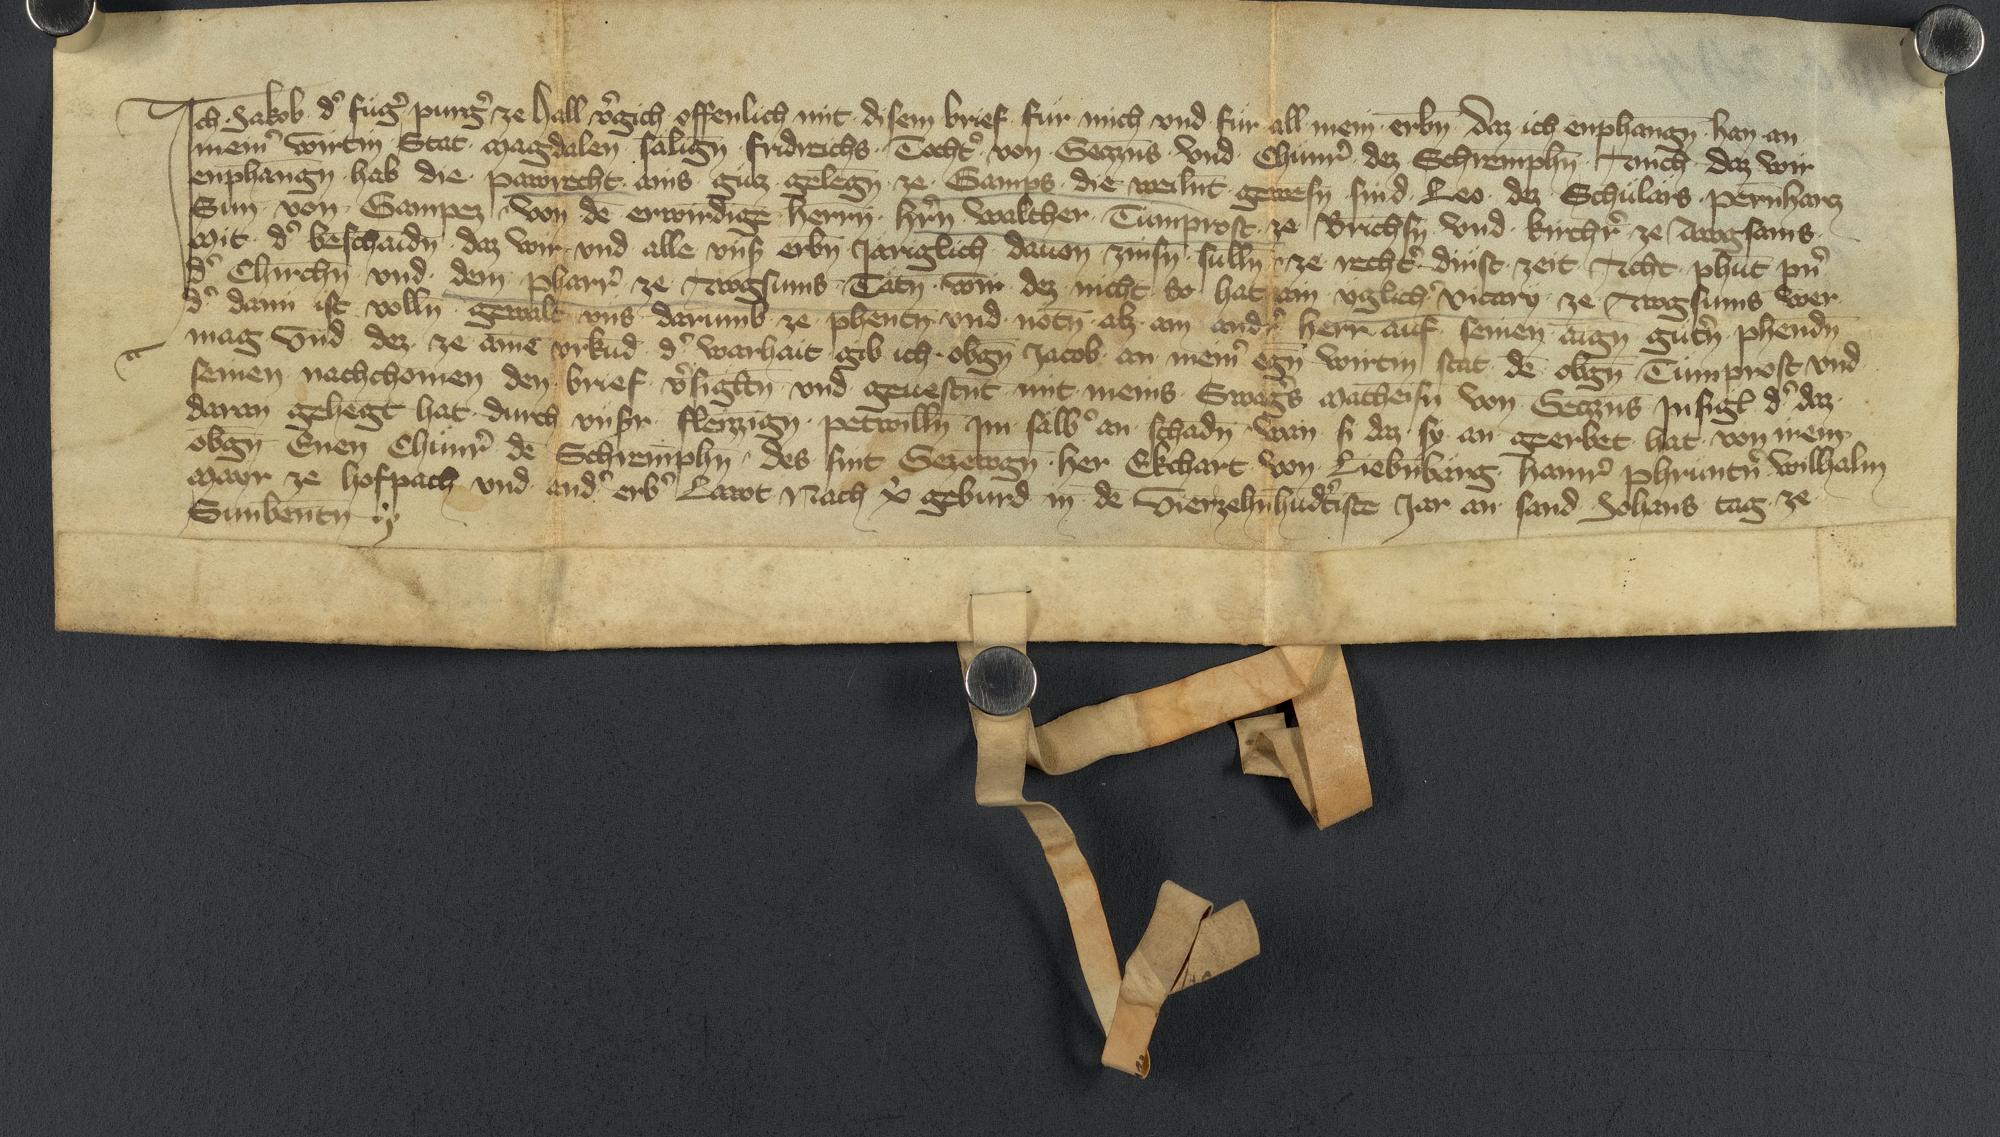 Ich Jakob d' Fug' purg' ze Hall v'gich offenlich mit disem brief für mich vnd für all mein erbn Daz ich enphangn han an
meinr wirtin Stat Magdalen saligñ Fridreichs Tocht' von Seczns vnd Chunr' dez Schremphn Auch daz wir
enphangn hab die pawrecht ains gucz gelegn ze Gamps die weilnt gewesn sind Leo dez Schulárs pernharcz
Sun von Gampez von dē erwirdigē herrn hr̄n Walther Tumprost ze Brichsn vnd kirchr' ze Awgsams
Mit d' beschaidn daz wir vnd alle vns' erbn Járiglich dauon zinsn sulln ze recht' dinst zeit Acht phut pn'
d' Chirchn vnd dem pharr' ze Awgsums Tátn wir dez nicht so hat ain yglich' vicary ze Awgsums wer
d' dann ist volln gewalt vns darumb ze phentn vnd nótn alz ain and' herr auf seinen aign gutn' phendn
mag Vnd dez ze aīme vrkūd d' warhait gib ich obgn Jacob an meinr' egn wirtin stat dē obgn Tumprost vnd
seinen nachchomen den brief v'sigltn vnd geuestnt mit meins Swag's Matheisn von Seczns Insigl d' daz
daran gehegt hat durch vnsr fleizzign petwilln Im sálb' an schadn wan si daz sy an geerbet hat von irem
obgn Enen Chunr' dē Schremphn des sint Gezewgn her Ekchart von Liebnberg hanns' phruntn' Wilhalm
Mayr ze hofpach vnd and' erb' Láwt Nach x̄ geburd in dē Vierzehnhūd'tiste Jar an sand Johans tag ze
Sunbentn